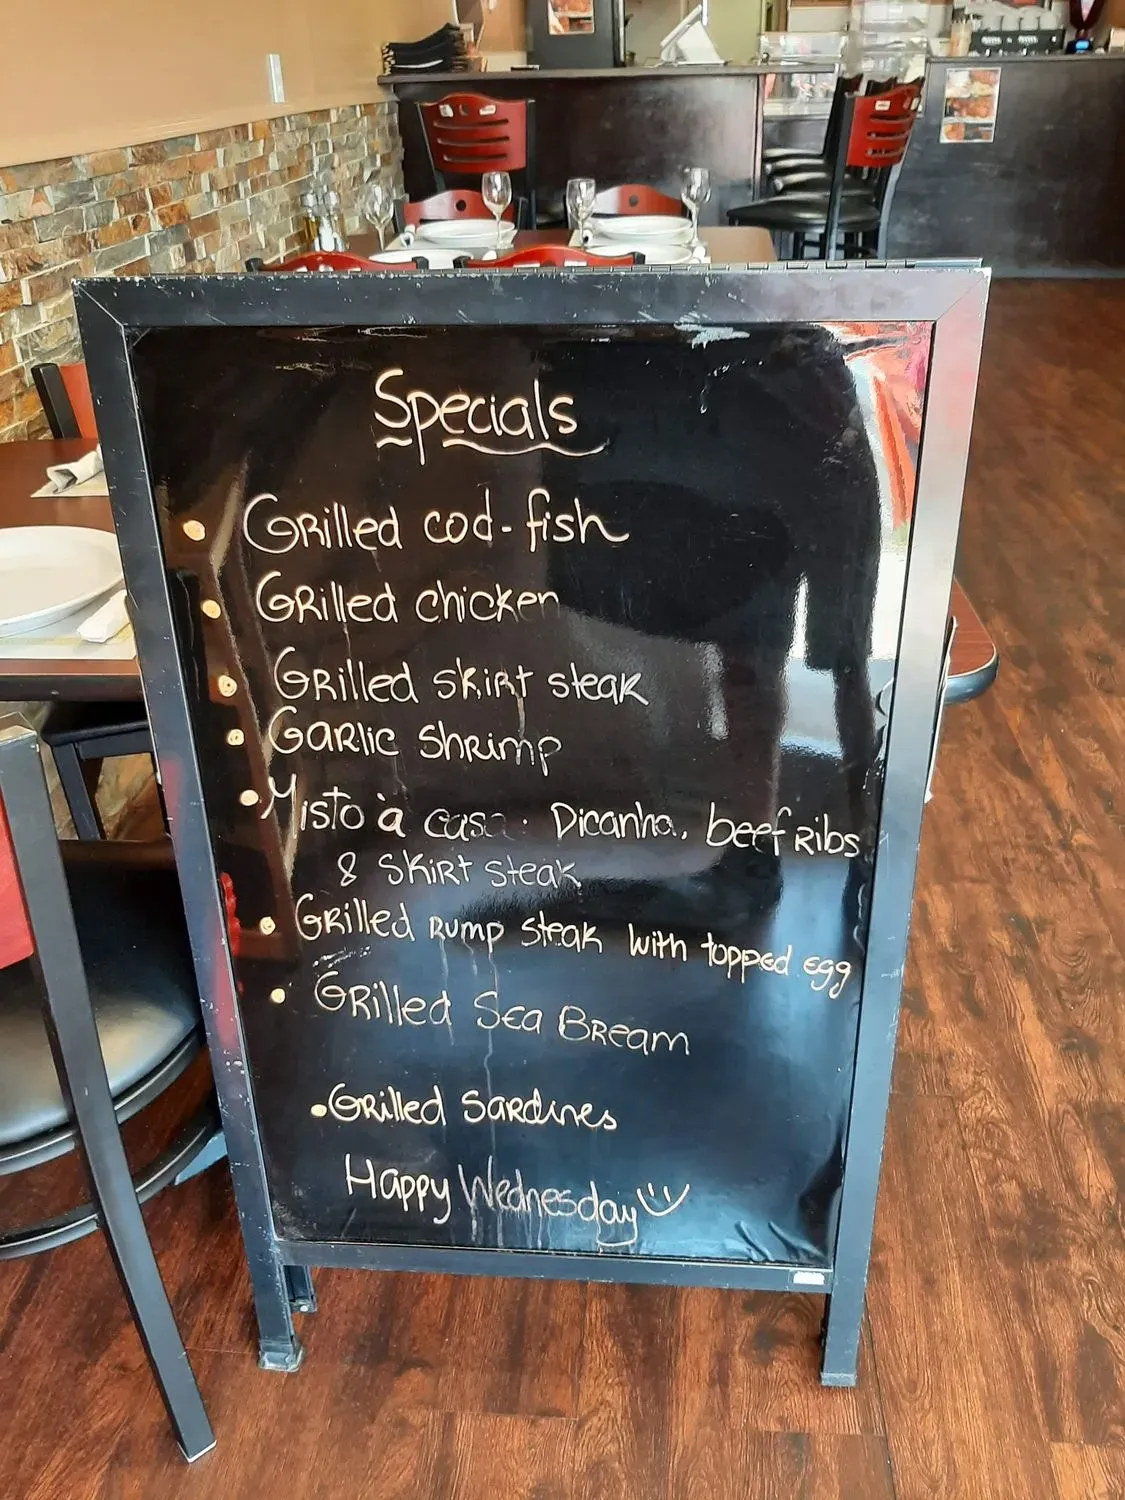 Specials
Grilled cod-fish
Grilled chicken
Grilled skirt steak
Garlic shrimp
Misto à casa. Picanha, beef ribs
& skirt steak
Grilled rump steak with topped egg
Grilled Sea Bream
Grilled Sardines
Happy Wednesday